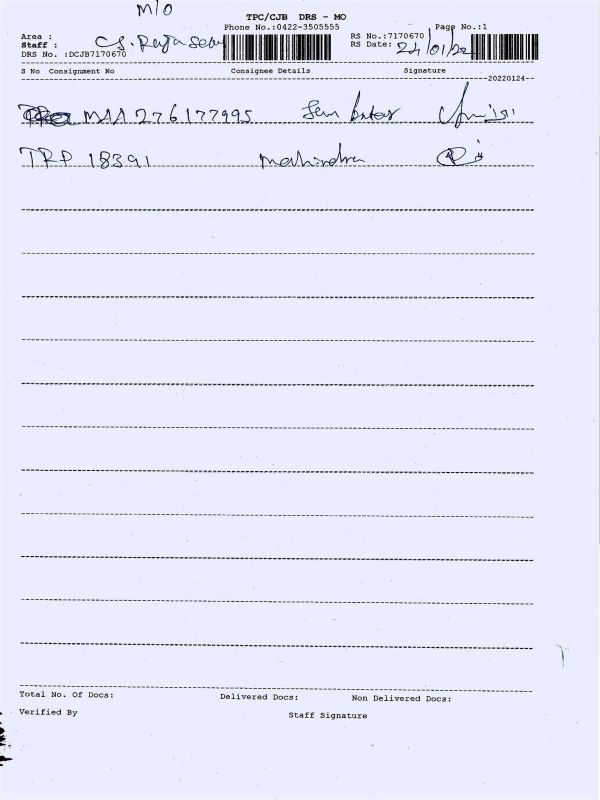 M/O
TPC/CJB DRS - MO
Phone No.:0422-3505555 Page No.:1
Area : RS No.:7170670
Staff : RS Date: 24/01/22
DRS No. :DCJB7170670
S No Consignment No Consignee Details Signature
20220124
MAA 276177995
TRP 18391 mahindra
Total No. Of Docs: Delivered Docs: Non Delivered Docs:
Verified By Staff Signature